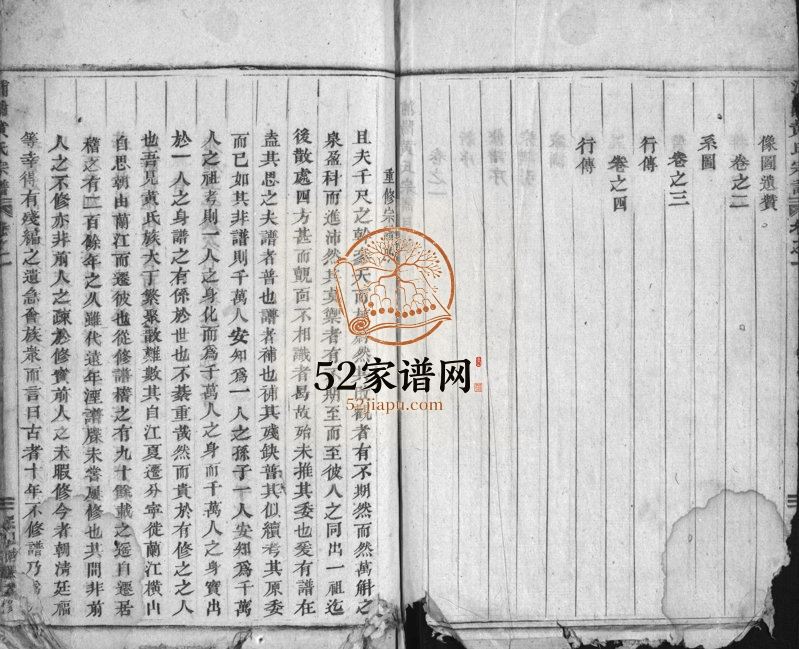 像圖遺贊
卷之二
系圖
卷之三
行傳
卷之四
行傳
重修宗
且夫千尺之幹參天而
觀者有不期然而然萬斛之
泉盈科而進沛然其莫禦者有不期至而至彼人之同出一祖迄
後散處四方甚而覿面不相識者曷故殆未推其委也爰有譜在
盍其思之夫譜者普也譜者補也補其殘缺普其似續考其原委
而已如其非譜則千萬人安知為一人之孫子一人安知為千萬
人之祖考則一人之身化而為千萬人之身而千萬人之身實出
於一人之身譜之有係於世也不綦重哉然而貴於有修之之人
也吾見黄氏族大丁繁聚散難數其自江夏遷分寧徙蘭江橫山
自思朝由蘭江而遷彼也從修譜稽之有九十餘載之遥自遷居
稽之有二百餘年之久雖代遠年湮譜牒未嘗屢修也其間非前
人之不修亦非前人之疎於修實前人之未暇修今者朝清廷福
等幸得有殘編之遺急會族衆而言曰古者十年不修譜乃為
黄氏宗譜
52家谱网
52jiapu.com